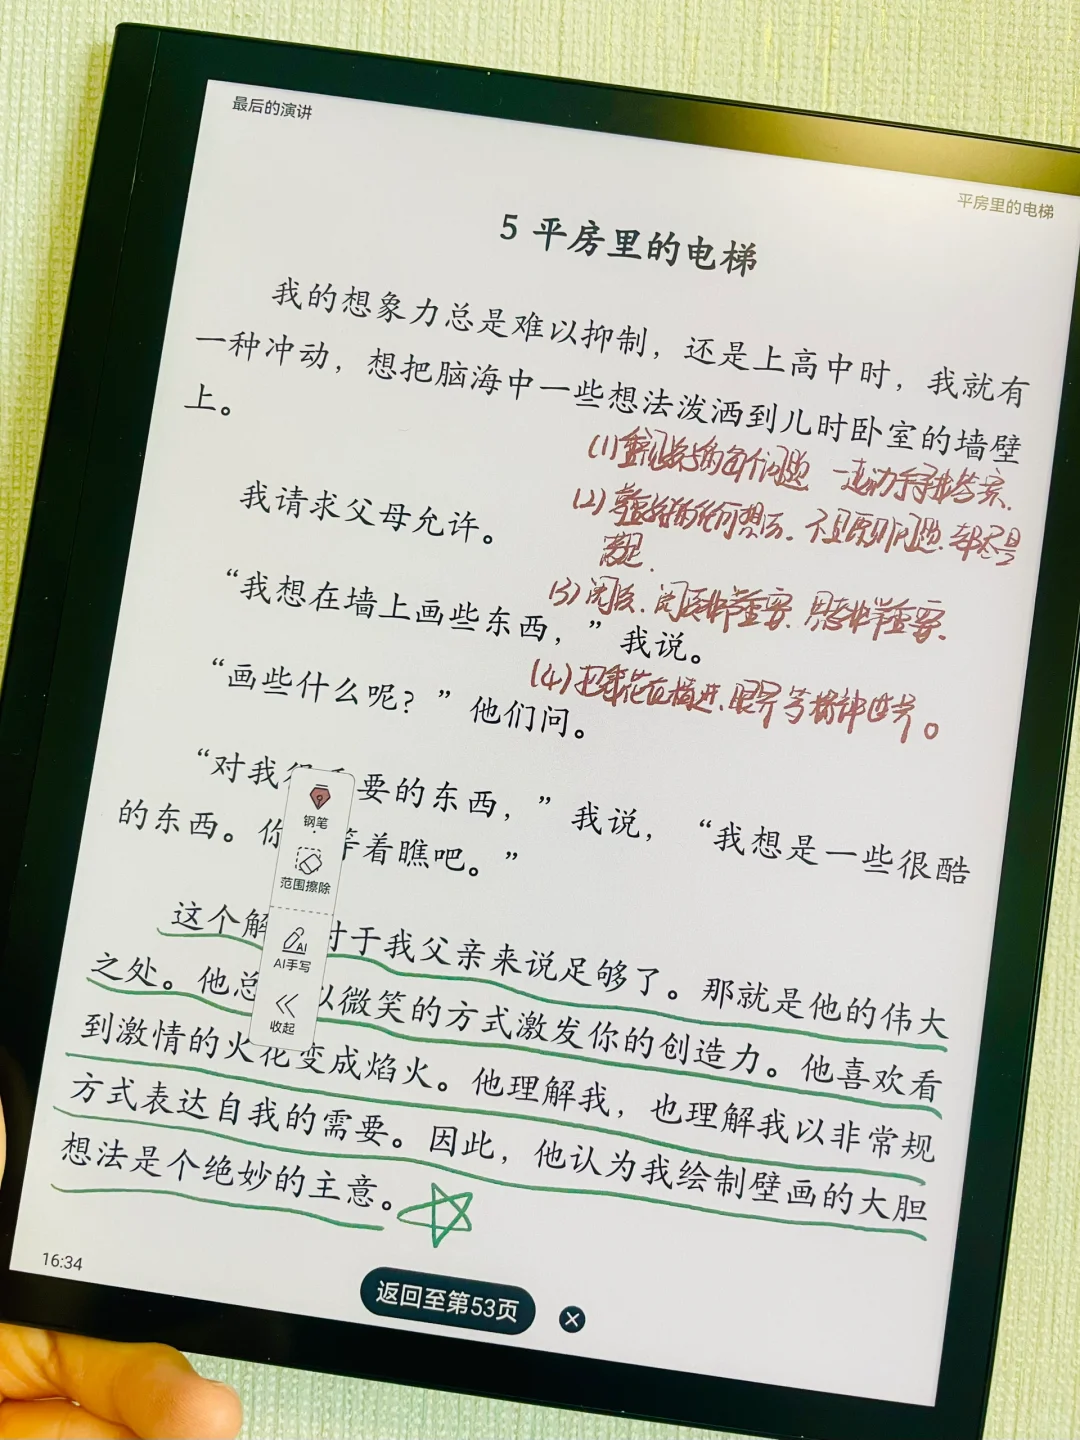 最后的演讲
平房里的电梯
5 平房里的电梯
我的想象力总是难以抑制，还是上高中时，我就有
一种冲动，想把脑海中一些想法泼洒到儿时卧室的墙壁
上。
(1)重视孩子的每个问题 一起动手寻找答案.
我请求父母允许。
(2) 孩子的任何想法. 不且 问题. 都尽量
满足.
“我想在墙上画些东西，”我说。
(3) 阅读. 阅读非常重要. 思考非常重要.
“画些什么呢？”他们问。
(4) 把 花在 . 眼界等精神世界。
“对我 要的东西，”我说，“我想是一些很酷
的东西。你 等着瞧吧。”
钢笔
范围擦除
AI手写
收起
这个解 对于我父亲来说足够了。那就是他的伟大
之处。他总 以微笑的方式激发你的创造力。他喜欢看
到激情的火花变成焰火。他理解我，也理解我以非常规
方式表达自我的需要。因此，他认为我绘制壁画的大胆
想法是个绝妙的主意。
16:34
返回至第53页